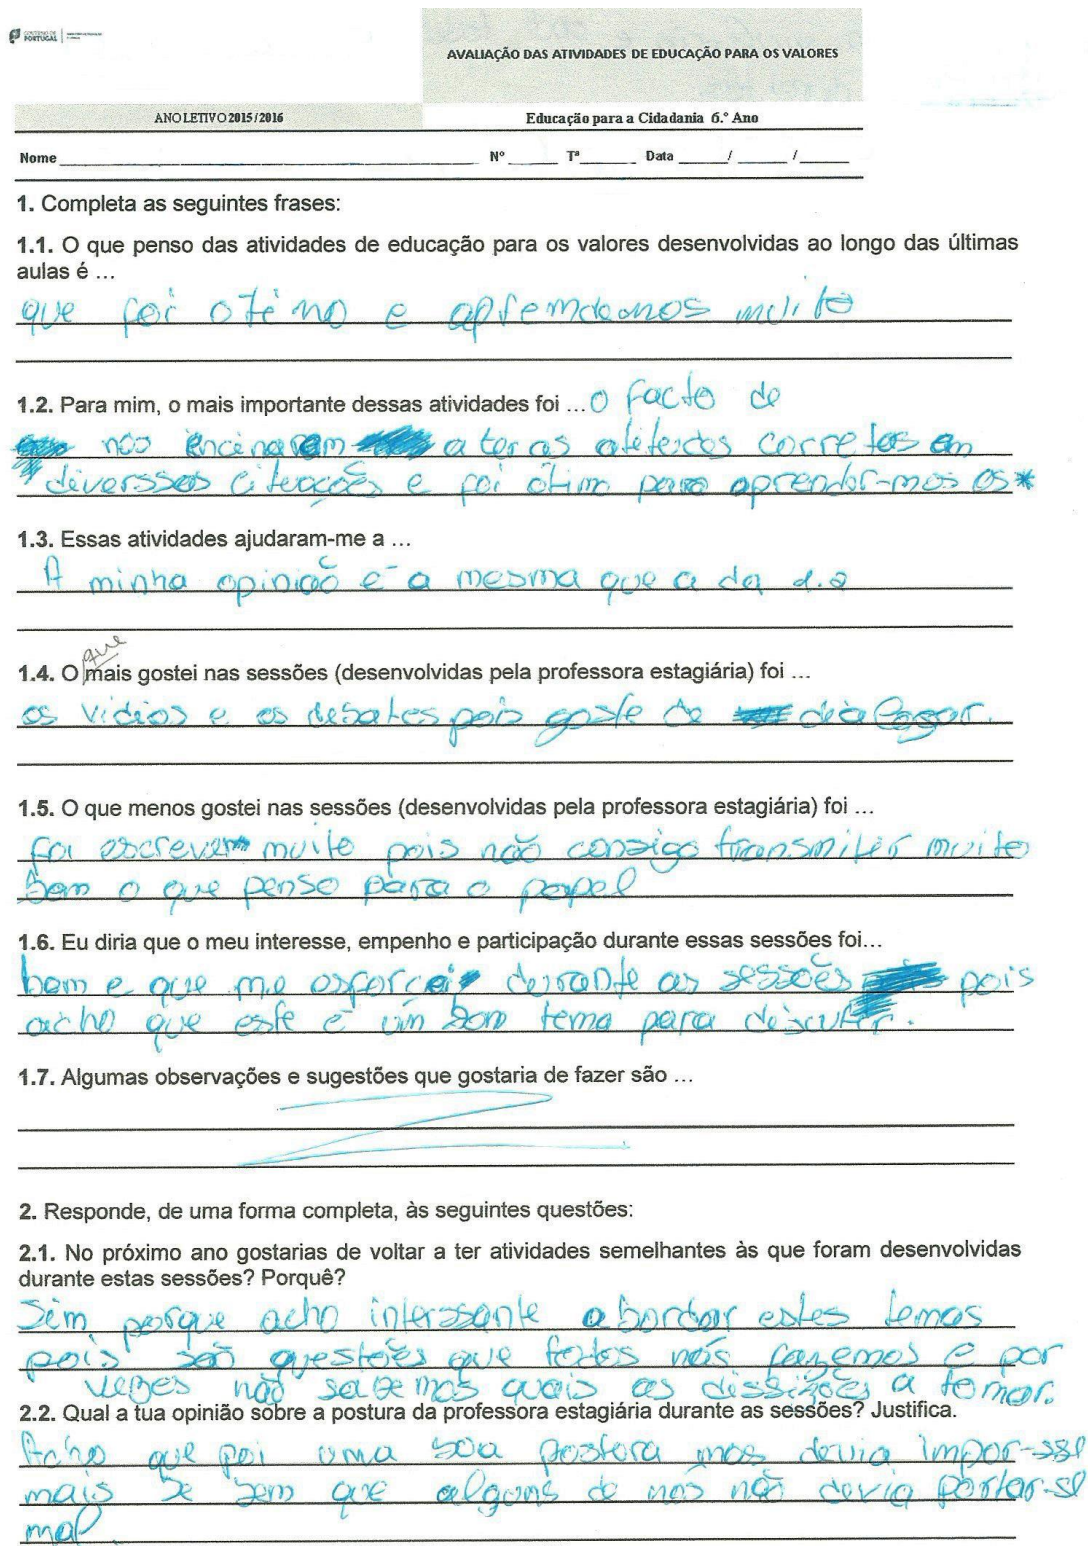 GOVERNO DE
PORTUGAL
AVALIAÇÃO DAS ATIVIDADES DE EDUCAÇÃO PARA OS VALORES
ANO LETIVO 2015/2016 Educação para a Cidadania 6.º Ano
Nome Nº Tª Data / /
1. Completa as seguintes frases:
1.1. O que penso das atividades de educação para os valores desenvolvidas ao longo das últimas
aulas é ...
que foi otimo e apremdeomos muito
1.2. Para mim, o mais importante dessas atividades foi ... O facto de
nos encinarem a ter as atitudes corretas em
diverssas cituações e foi ótimo para aprender-mos os*
1.3. Essas atividades ajudaram-me a ...
A minha opinião é a mesma que a da 1.2
que
1.4. O mais gostei nas sessões (desenvolvidas pela professora estagiária) foi ...
os vidios e os debates pois goste de dialogar.
1.5. O que menos gostei nas sessões (desenvolvidas pela professora estagiária) foi ...
foi escrever muito pois não consigo transmitir muito
bem o que penso para o papel
1.6. Eu diria que o meu interesse, empenho e participação durante essas sessões foi...
bem e que me esforcei durante as sessões pois
acho que este é um bom tema para discutir.
1.7. Algumas observações e sugestões que gostaria de fazer são ...
2. Responde, de uma forma completa, às seguintes questões:
2.1. No próximo ano gostarias de voltar a ter atividades semelhantes às que foram desenvolvidas
durante estas sessões? Porquê?
Sim, porque acho interssante abordar estes temas
pois são questões que todos nós fazemos e por
vezes não sabemos quais as dissizões a tomar.
2.2. Qual a tua opinião sobre a postura da professora estagiária durante as sessões? Justifica.
Acho que foi uma boa postora mas devia impor-sse
mais se bem que alguns de nós não devia portar-se
mal.